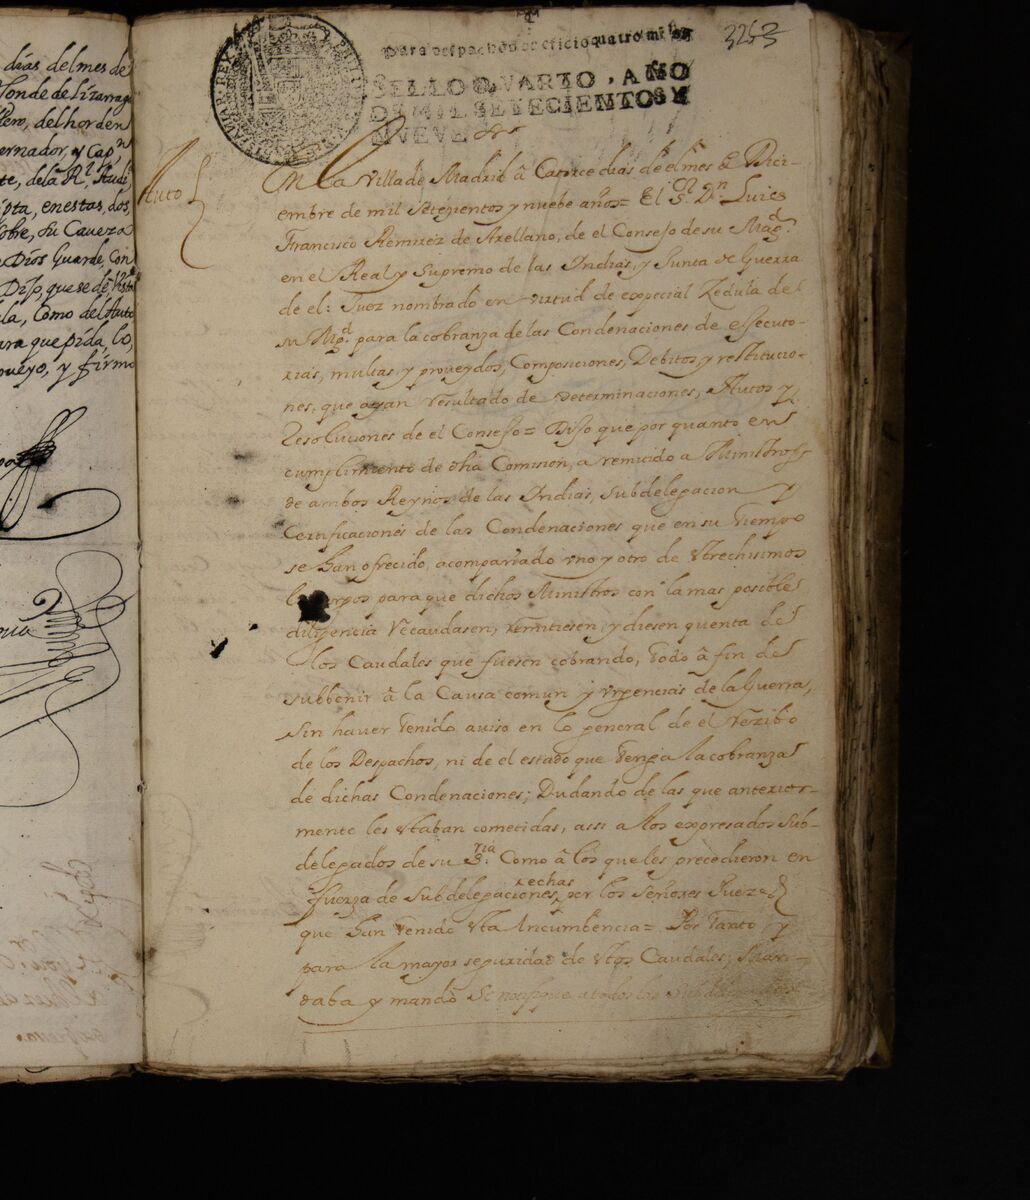 dias del mes de
Conde de Lizarraga
llero, del horden
ernador, y Capn
te, de la Rl. Audi
ipta, en estas, dos
obre, su Caveza
e Dios Guarde, Con
Dijo, que se dé vista
la, Como del Auto
para que pida, lo,
oveyo, y firmo
3263
Para despachos de oficio quatro mrs.
SELLO QVARTO, AÑO
DE MIL SETECIENTOS Y
NVEVE
Auto
En la Villa de Madrid â Catorce dias de el mes de Dici-
embre de mil Setezientos y nuebe años= El Sr. Dn. Luis
Francisco Remirez de Arellano, de el Consejo de su Magd.
en el Real y Supremo de las Indias, y Junta de Guerra
de el: Juez nombrado en virtud de expecial Zedula de
su Mgd. para la cobranza de las Condenaciones de essecuto-
rias, multas, y proveydos, Composiciones, Debitos, y restitucio-
nes, que ayan resultado de Determinaciones, Autos y
Resoluciones de el Consejo= Dijo que por quanto en
cumplimiento de dha Comision, a remitido a Ministros
de ambos Reynos de las Indias, subdelegacion y
Certificaciones de las Condenaciones que en su tiempo
se han ofrecido, acompañado uno y otro de estrechisimos
para que dichos Ministros con la mas posible
diligencia recaudasen, remitiesen, y diesen quenta de
los Caudales que fuesen cobrando, todo â fin de
subbenir â la Causa comun y urgencias de la Guerra,
sin haver tenido aviso en lo general de el rezibo
de los Despachos, ni de el estado que tenga la cobranza
de dichas Condenaciones; Dudando de las que anterior-
mente les estaban cometidas, assi a los expresados Sub-
delegados de su Sria. Como â los que les precedieron en
fuerza de Subdelegaciones, rechas por los Señores Juezes
que han tenido esta Incumbencia= Por tanto y
para la mayor seguridad de estos Caudales; Man-
daba y mandó Se notifique a todos los Subdelegados